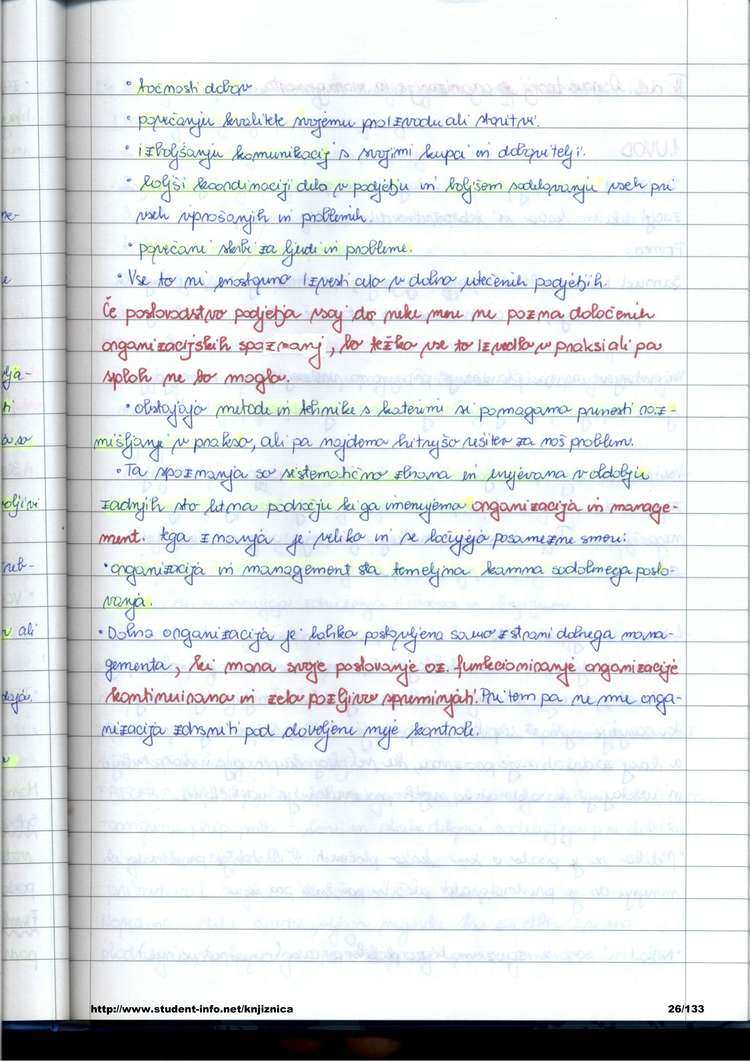 • točnosti dobav
• povečanju kvalitete svojemu proizvodu ali storitvi.
• izboljšanju komunikacij s svojimi kupci in dobavitelji.
• boljši koordinaciji dela v podjetju in boljšem sodelovanju vseh pri
vseh vprašanjih in problemih.
• povečani skrbi za ljudi in probleme.
• Vse to ni enostavno izvesti celo v dobro utečenih podjetjih.
Če poslovodstvo podjetja vsaj do neke mere ne pozna določenih
organizacijskih spoznanj, bo težko vse to izvedla v praksi ali pa
sploh ne bo mogla.
• obstajajo metode in tehnike s katerimi si pomagamo prenesti raz-
mišljanje v prakso, ali pa najdemo hitrejšo rešitev za naš problem.
• Ta spoznanja so sistematično zbrana in urejevana v obdobju
zadnjih sto let na področju ki ga imenujemo organizacija in manage-
ment. tega znanja je veliko in se ločujejo posamezne smeri:
• organizacija in management sta temeljna kamna sodobnega poslo-
vanja.
• Dobra organizacija je lahko postavljena samo s strani dobrega mana-
gementa, ki mora svoje poslovanje oz. funkcioniranje organizacije
kontinuirano in zelo pozljivo spreminjati. Pri tem pa ne sme orga-
nizacija zdrsniti pod dovoljene meje kontrole.
ne-
e
lja-
ti
oljivi
reb-
v ali
v
http://www.student-info.net/knjiznica
26/133